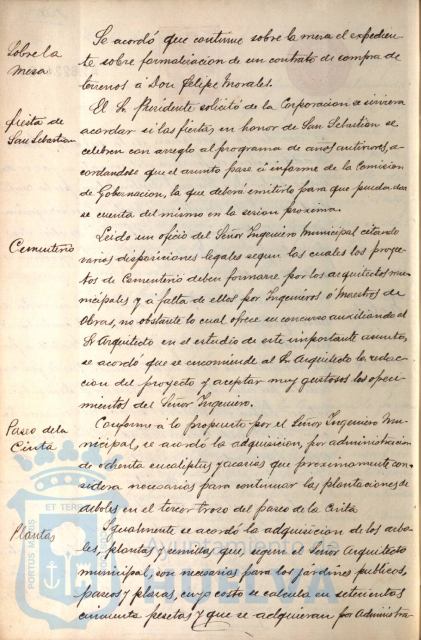 Sobre la
mesa
Se acordó que continue sobre la mesa el expedien-
te sobre formalizacion de un contrato de compra de
terrenos á Don Felipe Morales.
fiesta de
San Sebastian
El Sr Presidente solicitó de la Corporacion se sirviera
acordar si las fiestas en honor de San Sebastian se
celebren con arreglo al programa de años anteriores, a-
cordandose que el asunto pase á informe de la Comision
de Gobernacion, la que deberá emitirlo para que pueda dar
se cuenta del mismo en la sesion proxima.
Cementerio
Leido un oficio del Señor Ingeniero Municipal citando
varias disposiciones legales segun las cuales los proyec-
tos de Cementerio deben formarse por los arquitectos mu-
nicipales y á falta de ellos por Ingenieros ó Maestros de
Obras, no obstante lo cual ofrece su concurso auxiliando al
Sr Arquitecto en el estudio de este importante asunto,
se acordó que se encomiende al Sr Arquitecto la redac-
cion del proyecto y aceptar muy gustosos los ofreci-
mientos del Señor Ingeniero.
Paseo de la
Cinta
Conforme á lo propuesto por el Señor Ingeniero Mu-
nicipal, se acordó la adquisicion, por administracion
de ochenta eucaliptus y acacias que proximamente con-
sidera necesarios para continuar las plantaciones de
arboles en el tercer trozo del paseo de la Cinta
Plantas
Igualmente se acordó la adquisicion de los arbo-
les, plantas y semillas que, segun el Señor Arquitecto
municipal, son necesarios para los jardines publicos,
paseos y plazas, cuyo costo se calcula en setecientas
cincuenta pesetas y que se adquieran por Administra-
PORTUS MARIS
ET TERRE
Ayuntamiento de
HUELVA